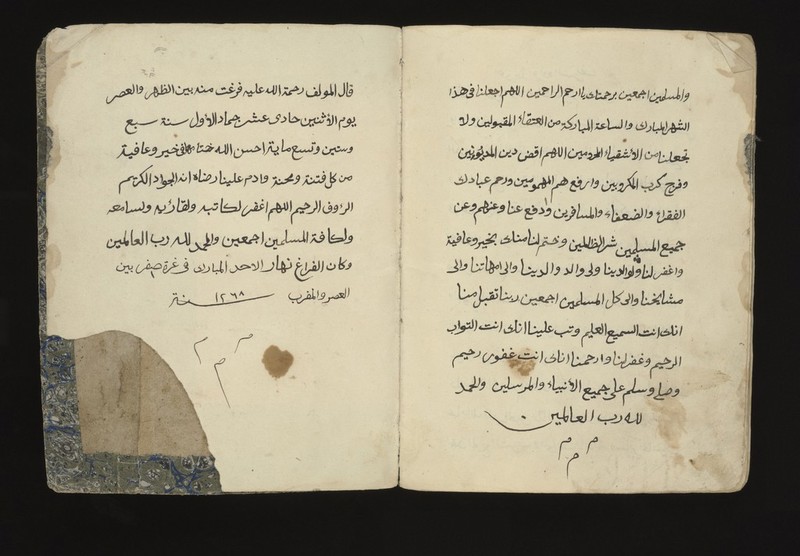 والمسلمين اجمعين برحمتك يا ارحم الراحمين اللهم اجعلنا في هذا
الشهر المبارك والساعة المباركة من العتقاء المقبولين ولا
تجعلنا من الأشقياء المحرومين اللهم اقض دين المديونين
وفرج كرب المكروبين وارفع هم المهمومين ورحم عبادك
الفقراء والضعفاء والمسافرين وادفع عنا وعنهم وعن
جميع المسلمين شر الظالمين وختم لنا منك بخير وعافية
واغفر لنا ولوالدينا ولوالد والدينا والى امهاتنا والى
مشائخنا والى كل المسلمين اجمعين ربنا تقبل منا
انك انت السميع العليم وتب علينا انك انت التواب
الرحيم وغفر لنا وارحمنا انك انت غفور رحيم
وصلى وسلم على جميع الأنبياء والمرسلين والحمد
لله رب العالمين
م م م
قال المولف رحمة الله عليه فرغت منه بين الظهر والعصر
يوم الأثنين حادى عشر جماد الأول سنة سبع
وستين وتسع ماية احسن الله ختامها في خير وعافية
من كل فتنة ومحنة وادم علينا رضاء انه الجواد الكريم
الرؤف الرحيم اللهم اغفر لكاتبه ولقارئه ولسامعه
ولكافة المسلمين اجمعين والحمد لله رب العالمين
وكان الفراغ نهار الاحد المبارك في غرة صفر بين
العصر والمغرب ١٢٦٨ سنة
م م م